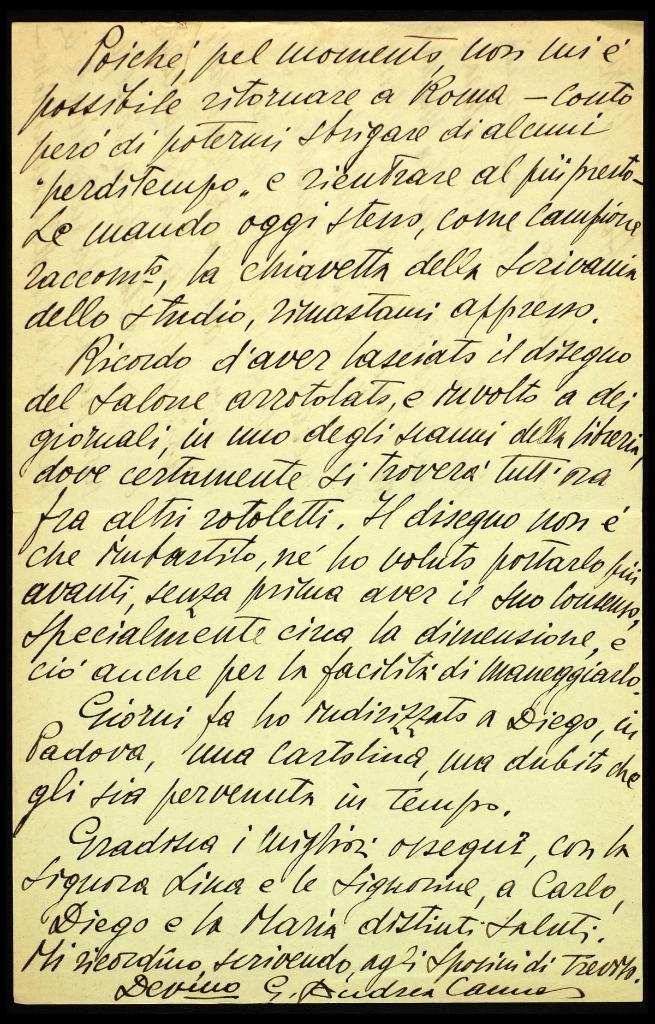 Poiché, pel momento, non mi é
possibile ritornare a Roma – conto
peró di potermi sbrigare di alcuni
"perditempo„ e rientrare al più presto –
Le mando oggi stesso, come campione
raccomto, la chiavetta della scrivania
dello studio, rimastami appresso.
Ricordo d'aver lasciato il disegno
del salone arrotolato, e involto a dei
giornali, in uno degli scanni della libreria,
dove certamente si troverá tutt'ora
fra altri rotoletti. Il disegno non é
che imbastito, né ho voluto portarlo piú
avanti, senza prima aver il suo consenso,
specialmente circa la dimensione, e
ció anche per la facilitá di maneggiarlo.
Giorni fa ho indirizzato a Diego, in
Padova, una cartolina, ma dubito che
gli sia pervenuta in tempo.
Gradisca i migliori ossequi, con la
Signora Lina e le Signorine, a Carlo,
Diego e la Maria distinti saluti.
Mi ricordino, scrivendo, agli Sposini di Treviso.
Devmo G. Andrea